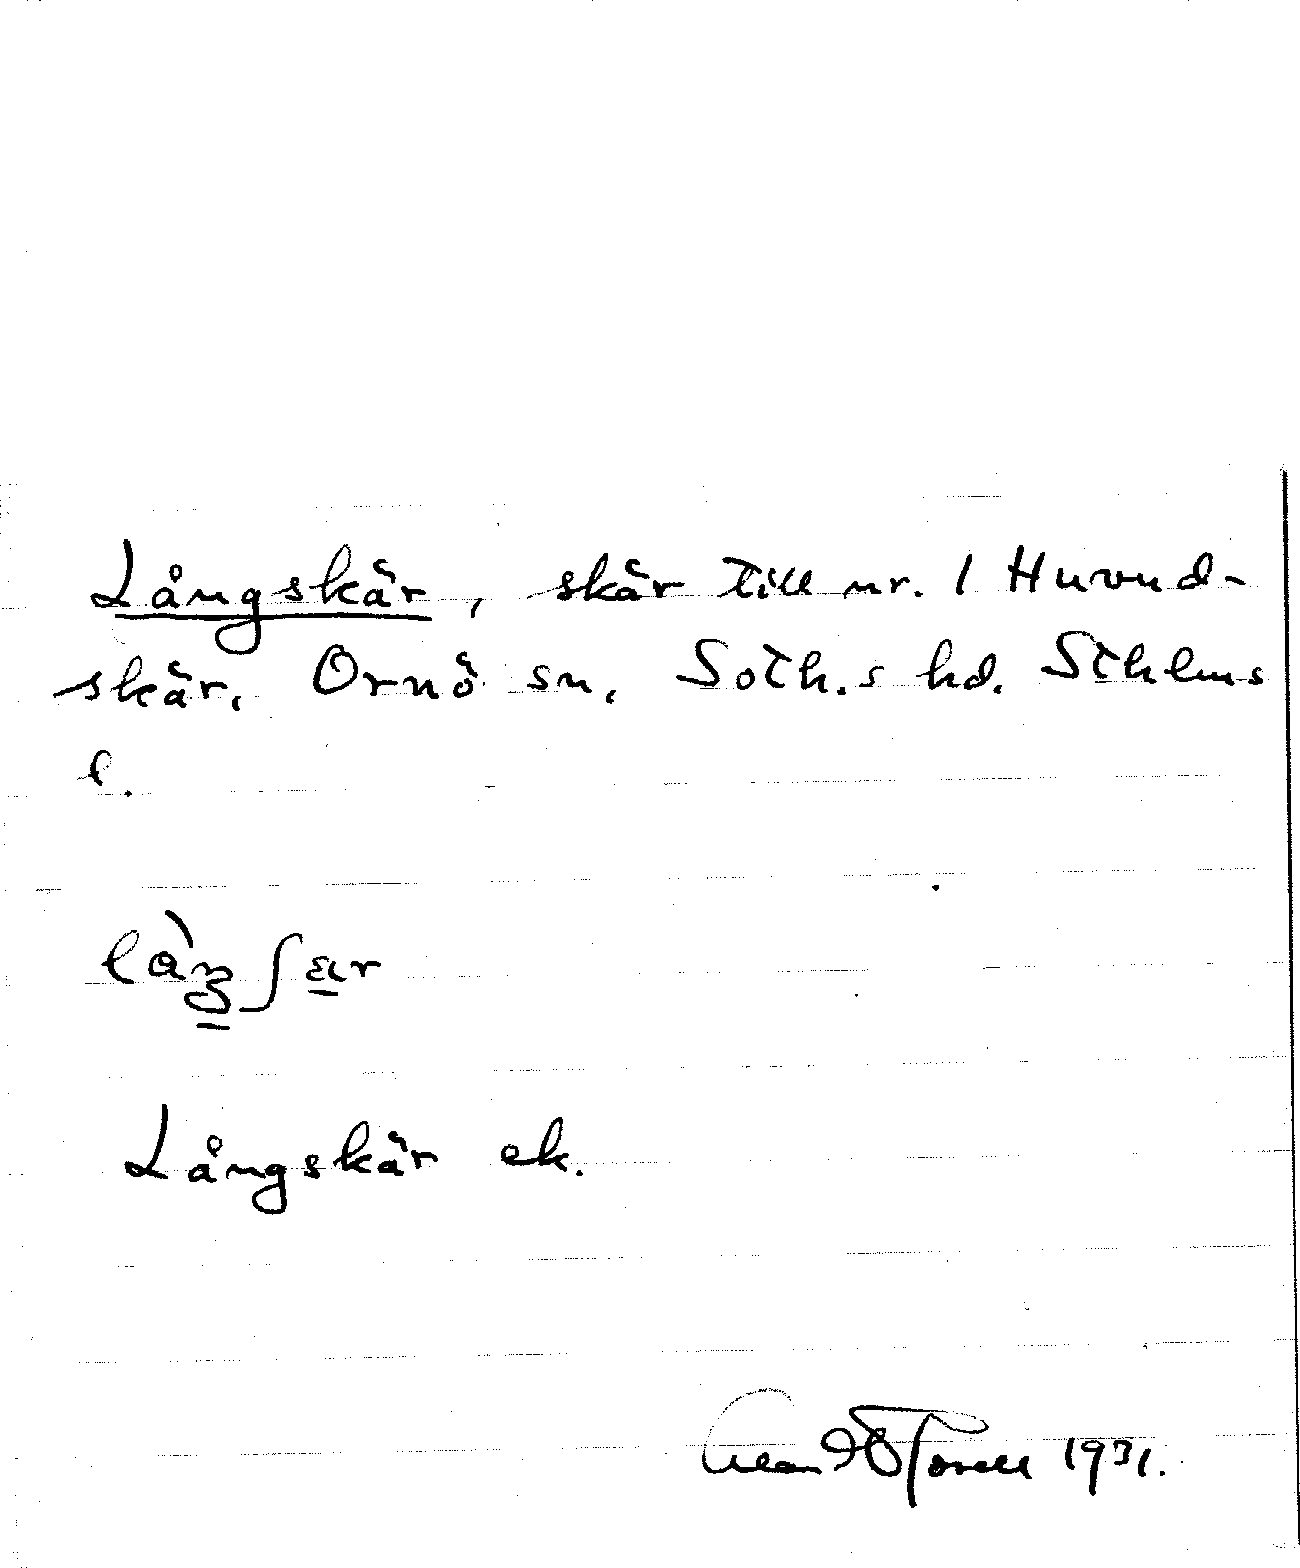 Långskär, skär till nr. 1 Huvud-
skär. Ornö sn. Soth.s hd. Sthlms
l.
Långskär ek.
1931.